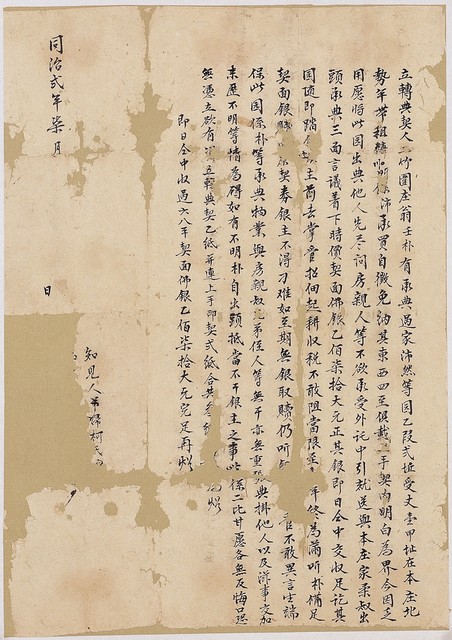 立轉典契人二份圍庄翁壬朴有承典過家沛然等園乙段弍坵受丈壹甲址在本庄北
勢年帶租 沛承買自徵免納其東西四至俱載 手契內明白為界今因乏
用愿將此園出典他人先尽問房親人等不欲承受外託中引就送與本庄家柔叔出
頭承典三面言議著下時價契面佛銀乙佰柒拾大元正其銀即日仝中交收足訖其
園隨即踏 主前去掌管招佃起耕收稅不敢阻當限 年終為滿听朴備足
契面銀 契券銀主不得刁难如至期無銀取贖仍听 不敢異言生端
保此園係朴等承典物業與房親叔兄弟侄人等無干亦無重張典掛他人以及 事交加
來歷不明等情為碍如有不明朴自出頭抵當不干銀主之事此係二比甘愿各無反悔口恐
無憑立欲有 立轉典契乙紙並連上手即契式紙合共
即日仝中收過六八平契面佛銀乙佰柒拾大元完足再炤
同治弍年柒月 日
知見人 婦柯氏